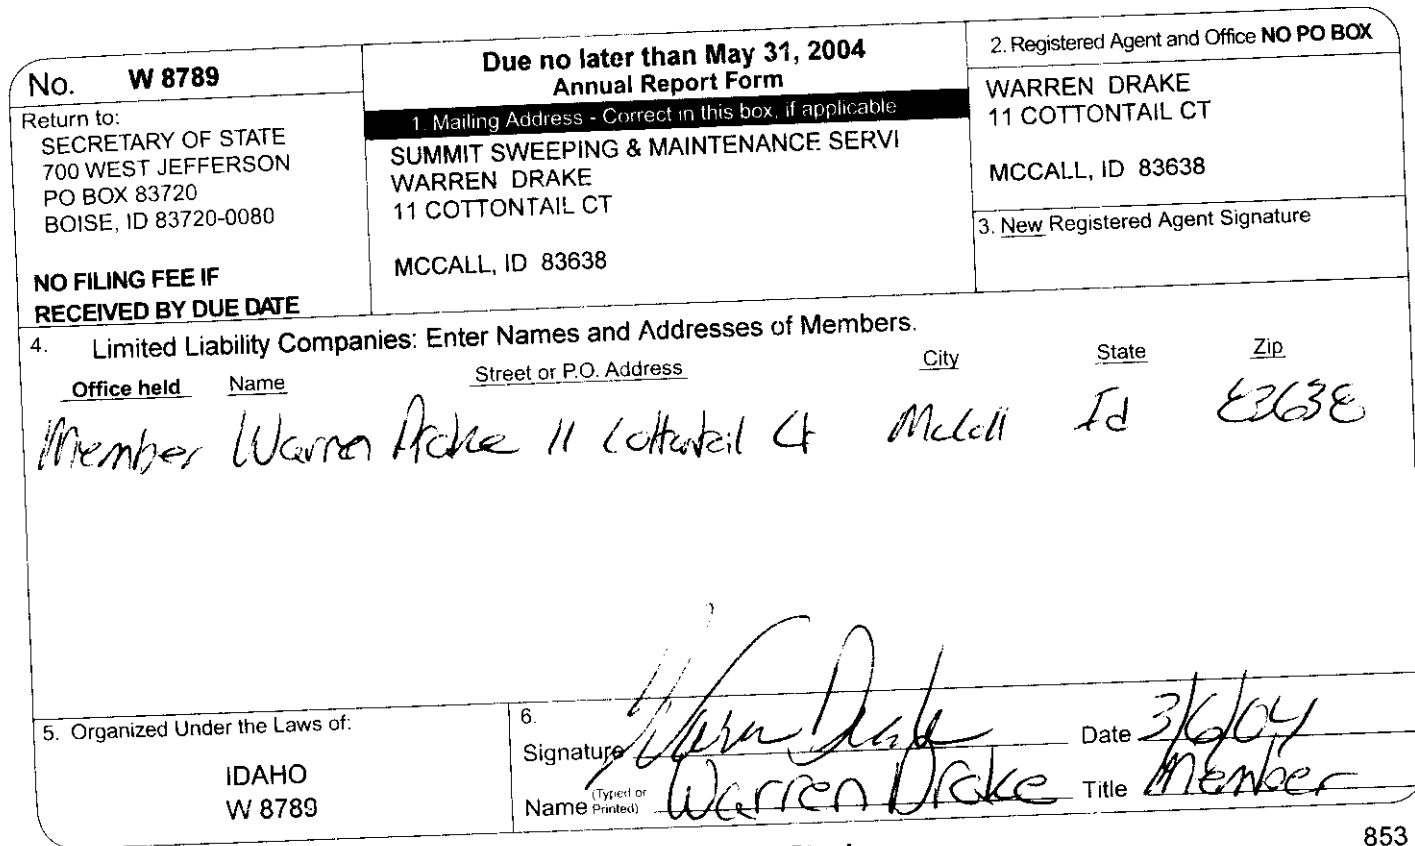 No. W 8789
Return to:
SECRETARY OF STATE
700 WEST JEFFERSON
PO BOX 83720
BOISE, ID 83720-0080
NO FILING FEE IF
RECEIVED BY DUE DATE
Due no later than May 31, 2004
Annual Report Form
1. Mailing Address - Correct in this box, if applicable
SUMMIT SWEEPING & MAINTENANCE SERVI
WARREN DRAKE
11 COTTONTAIL CT
MCCALL, ID 83638
2. Registered Agent and Office NO PO BOX
WARREN DRAKE
11 COTTONTAIL CT
MCCALL, ID 83638
3. New Registered Agent Signature
4. Limited Liability Companies: Enter Names and Addresses of Members.
Office held Name Street or P.O. Address City State Zip
Member Warren Drake 11 Cottontail Ct McCall Id 83638
5. Organized Under the Laws of:
IDAHO
W 8789
6.
Signature Warren Drake Date 3/6/04
Name (Typed or Printed) Warren Drake Title Member
853